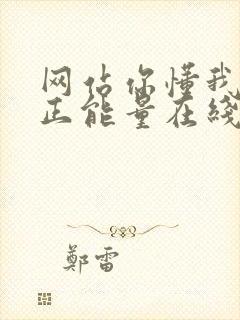 网站你懂我
正能量在线
郑雷